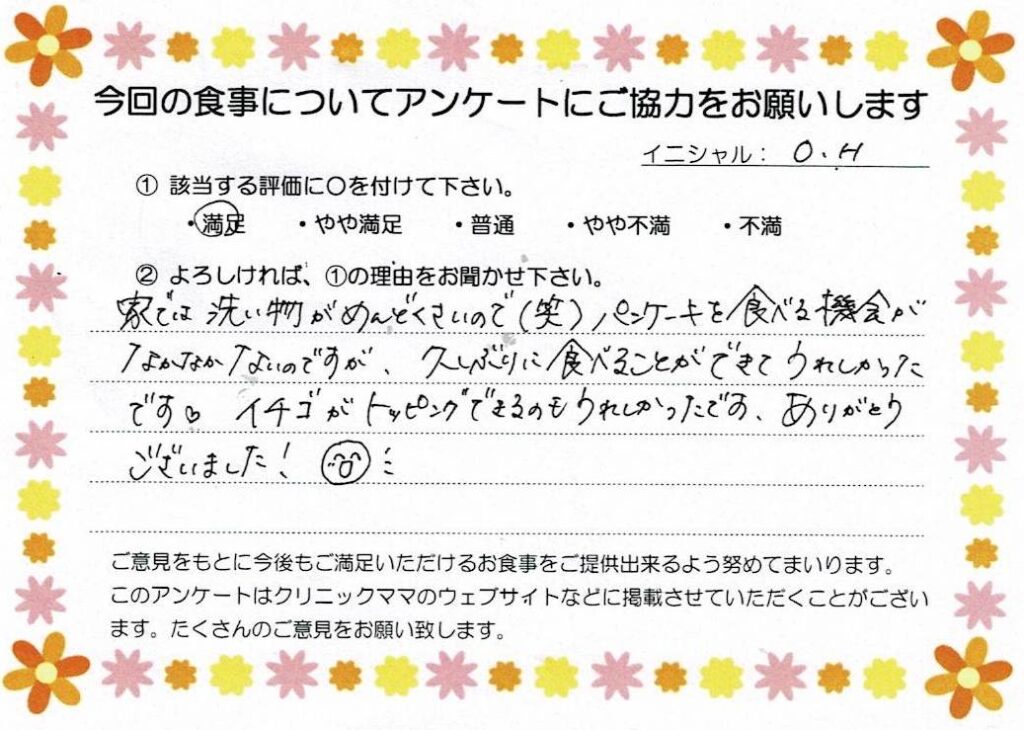 今回の食事についてアンケートにご協力をお願いします
イニシャル： O.H
① 該当する評価に〇を付けて下さい。
・満足 ・やや満足 ・普通 ・やや不満 ・不満
② よろしければ、①の理由をお聞かせ下さい。
家では洗い物がめんどくさいので(笑)パンケーキを食べる機会が
なかなかないのですが、久しぶりに食べることができてうれしかった
です♡ イチゴがトッピングできるのもうれしかったです、ありがとう
ございました!
ご意見をもとに今後もご満足いただけるお食事をご提供出来るよう努めてまいります。
このアンケートはクリニックママのウェブサイトなどに掲載させていただくことがござい
ます。たくさんのご意見をお願い致します。